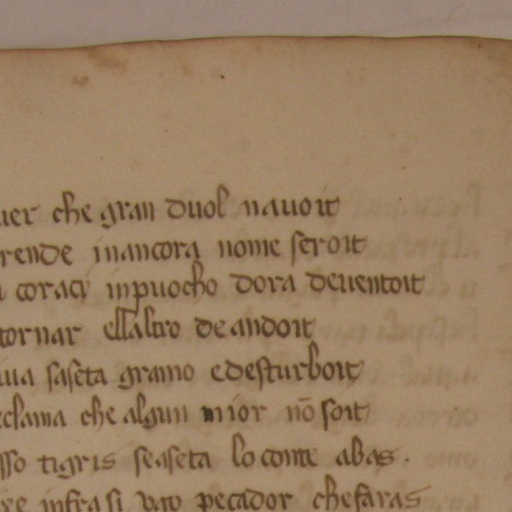 uer che gran duol nauoit
rende inancora nome feroit
coraçi inpuocho dora deuentoit
tornar ellaltro de andoit
ua saseta gramo e desturboit
eclama che algun mior nō soit
sso tigris seaseta lo conte abas.
infra si vato pecador che faras